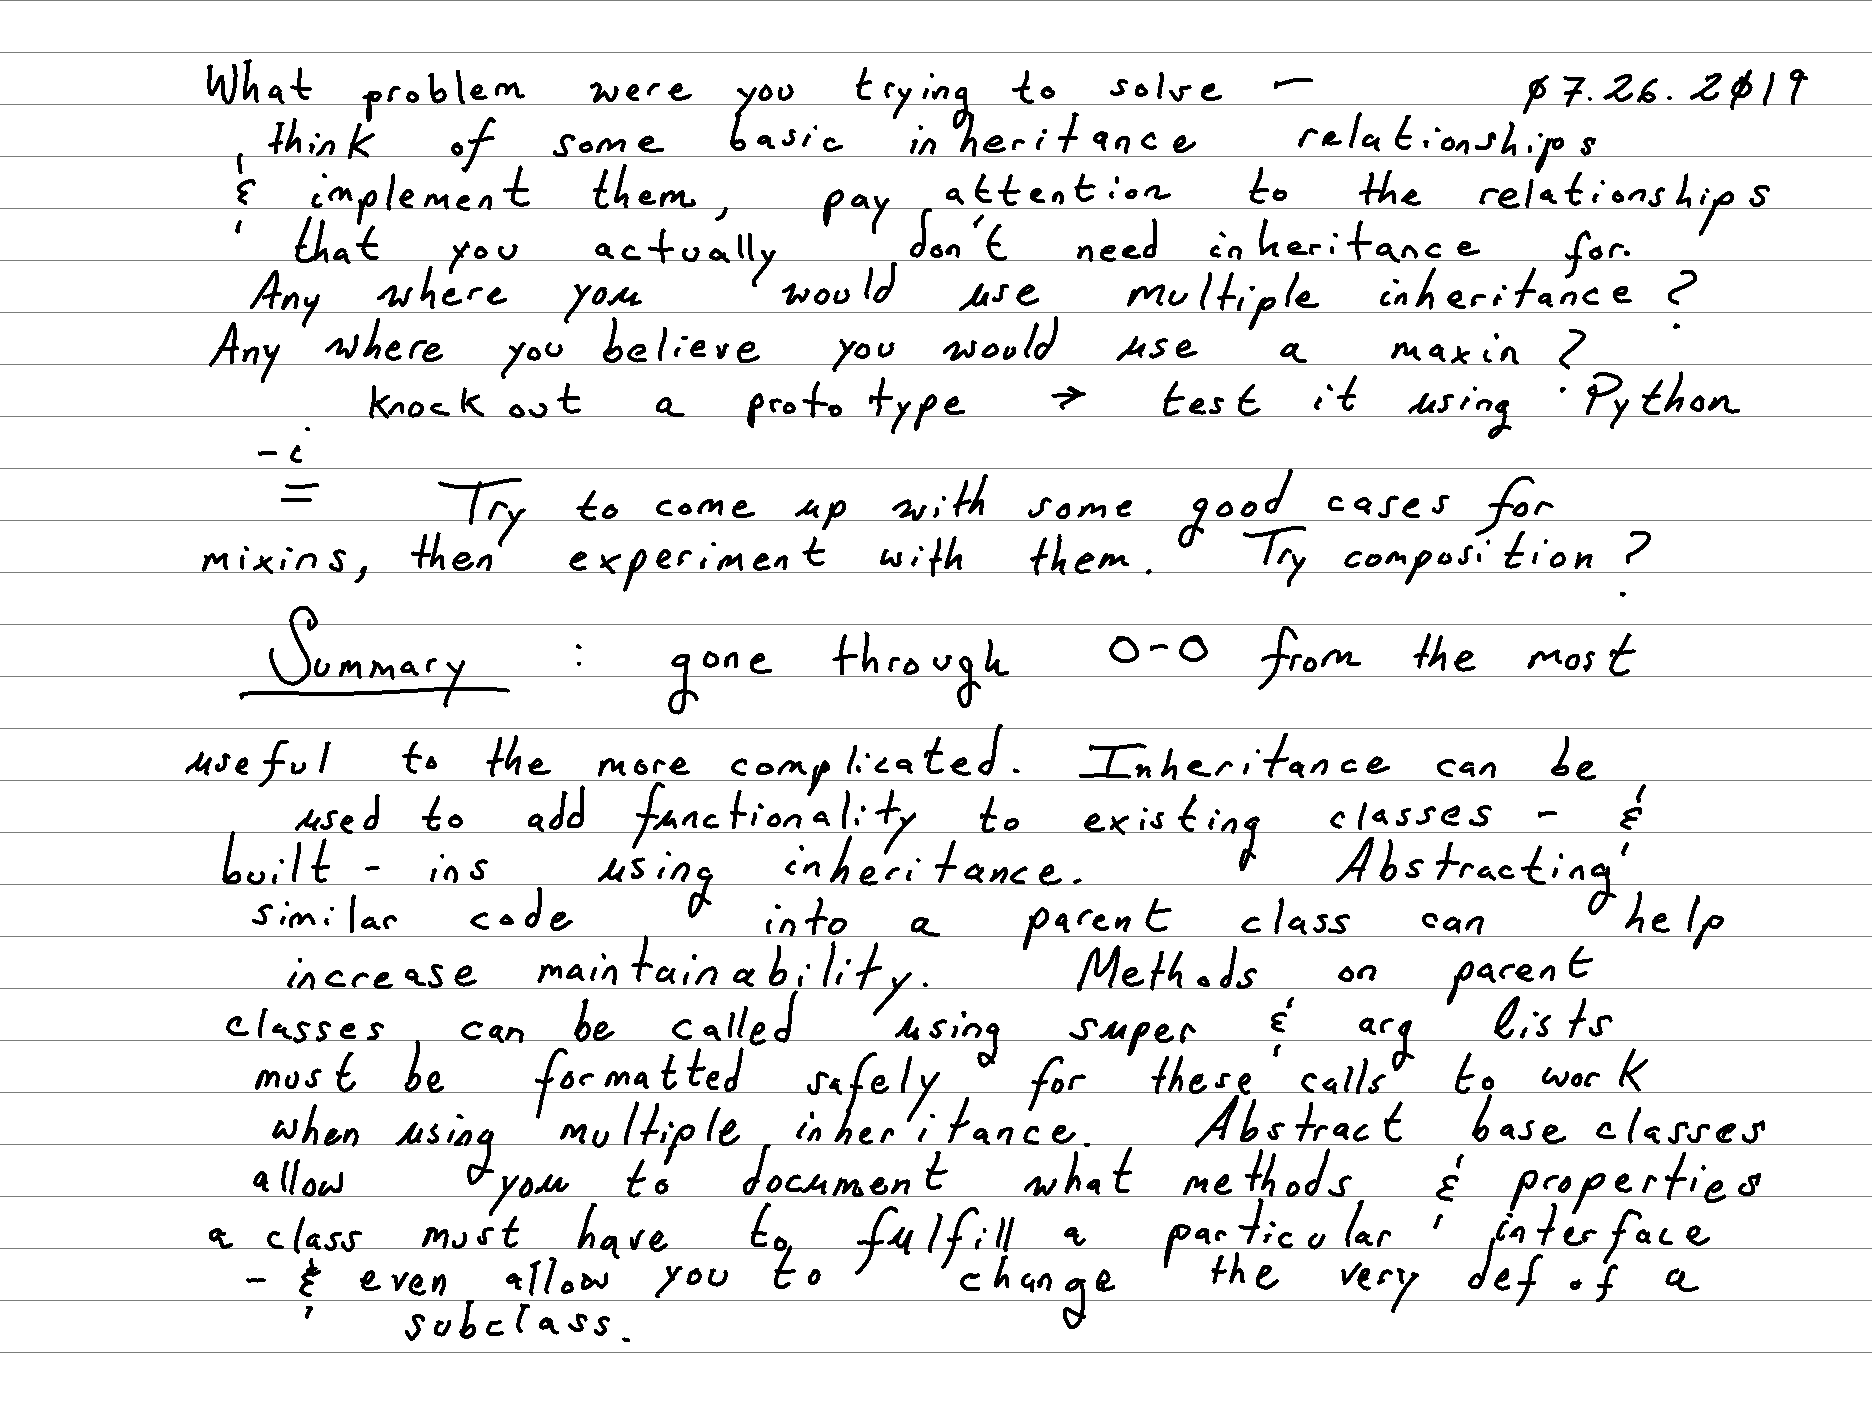 What problem were you trying to solve — ø7.26.2ø19
think of some basic inheritance relationships
& implement them, pay attention to the relationships
that you actually don't need inheritance for.
Any where you would use multiple inheritance?
Any where you believe you would use a maxin?
knock out a prototype → test it using Python
-i
= Try to come up with some good cases for
mixins, then experiment with them. Try composition?
Summary : gone through O-O from the most
useful to the more complicated. Inheritance can be
used to add functionality to existing classes - &
built-ins using inheritance. Abstracting
similar code into a parent class can help
increase maintainability. Methods on parent
classes can be called using super & arg lists
must be formatted safely for these calls to work
when using multiple inheritance. Abstract base classes
allow you to document what methods & properties
a class must have to fulfill a particular interface
- & even allow you to change the very def of a
subclass.